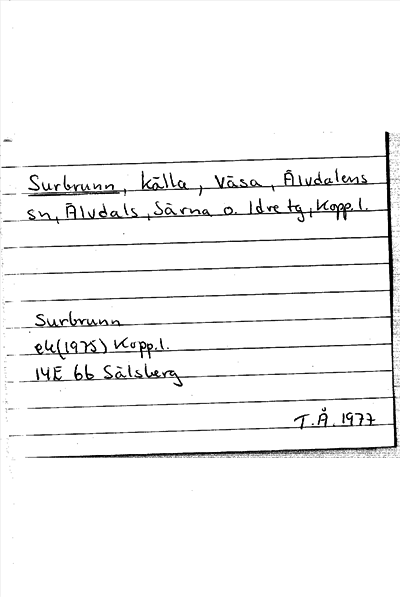 Surbrunn, källa, Våsa, Älvdalens
sn, Älvdals, Särna o. Idre tg, Kopp.l.
Surbrunn
ek (1975) Kopp.l.
14E 6b Sälsberg
T.Å. 1977